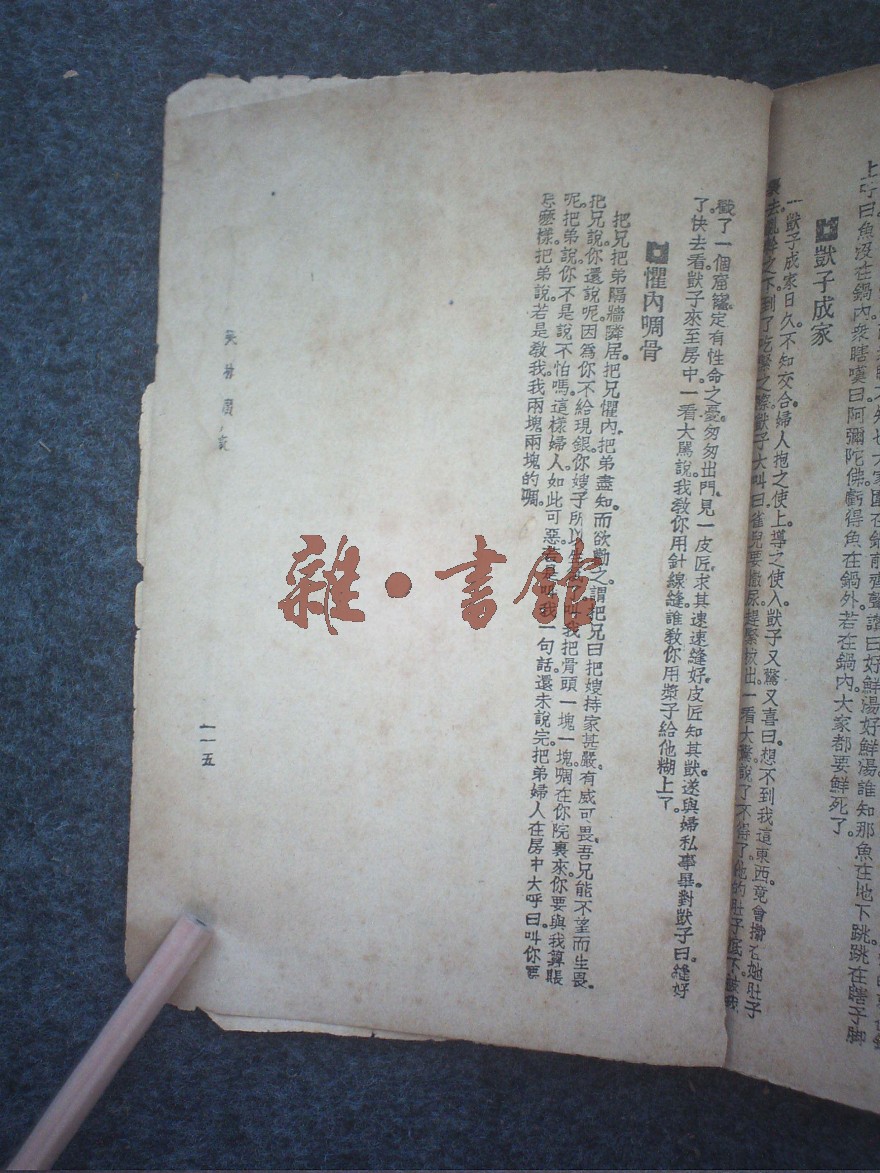 上呼曰魚沒在鍋內衆瞎嘆曰阿彌陀佛虧得魚在鍋外若在鍋內大家都要鮮死了。
獃子成家
一獃子成家日久不知交合婦人抱之使上。導之使入獃子又驚又喜曰想不到我這東西竟會
戳了一個窟窿定有性命之憂匆匆出門見一皮匠求其速速縫好皮匠知其獃遂與婦私事畢對獃子曰縫好
了快去看獃子來至房中一看大罵說我教你用針線縫誰教你用漿子給他糊上了。
懼內啁骨
把兄把弟隔牆隣居。把兄懼內。把弟盡知。而欲勸之。謂把兄曰把嫂持家甚嚴。有威可畏。吾兄能不望而生畏。
呢。把弟說。你不是說不怕嗎。這樣婦人如此可惡。若是叫我一句話。還未說完。把弟婦人在房中大呼曰。叫你要
把兄說。你還說呢。因為你不給現銀。你嫂子所以叫我把骨頭一塊一塊。啁在你院裏來。你要與我算賬
怎麼樣。把弟說。若是教我。我兩塊兩塊的啁。
笑林廣
一一五
雜·書館